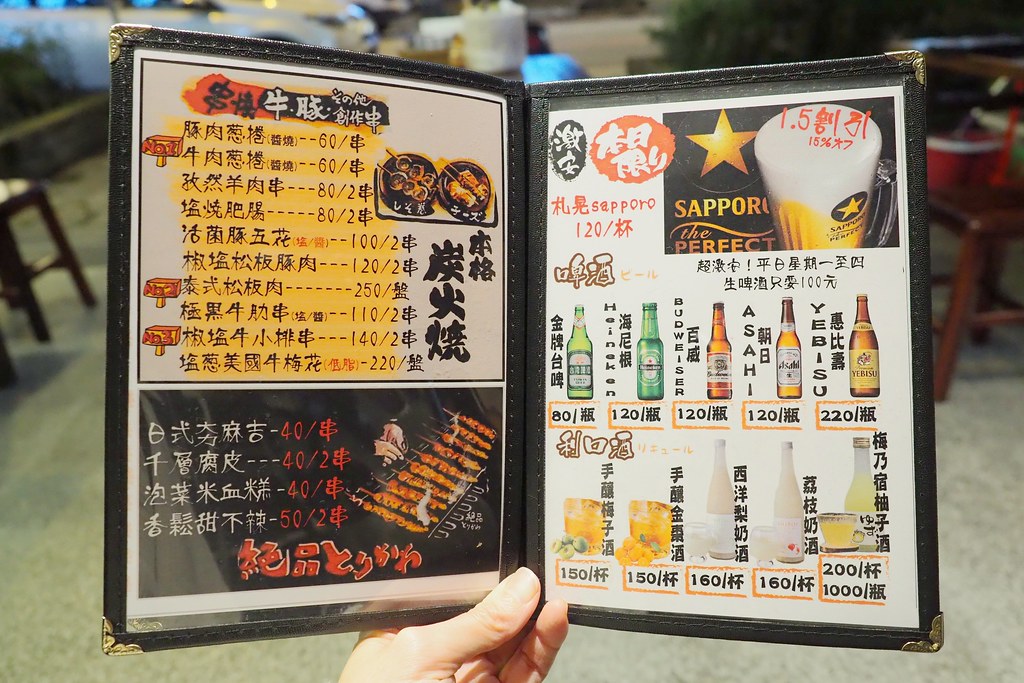 串燒 牛·豚 その他創作串
No.2
豚肉蔥捲(醬燒)--60/串
牛肉蔥捲(醬燒)--60/串
孜然羊肉串----80/2串
塩焼肥腸------80/2串
活菌豚五花(塩/醬)--100/2串
椒塩松板豚肉---120/2串
泰式松板肉------250/盤
極黒牛肋串(塩/醬)--110/2串
No.3
椒塩牛小排串---140/2串
塩蔥美國牛梅花(低脂)-220/盤
しそ巻
チーズ
本格
炭火燒
日式夯麻吉-40/串
千層腐皮---40/2串
泡菜米血糕-40/串
香鬆甜不辣-50/2串
絶品とりかわ
絶品とりかわ
激安
本日限り
1.5割引
15%オフ
札晃sapporo
120/杯
SAPPORO
the
PERFECT
SAPPORO
PERFECT
超激安！平日星期一至四
生啤酒只要100元
啤酒 ビール
金牌台啤
Heineken 海尼根
BUDWEISER 百威
ASAHI 朝日
YEBISU 惠比壽
Asahi
YEBISU
80/瓶
120/瓶
120/瓶
120/瓶
220/瓶
利口酒 リキュール
手釀梅子酒
手釀金棗酒
西洋梨奶酒
荔枝奶酒
梅乃宿柚子酒
ゆず
150/杯
150/杯
160/杯
160/杯
200/杯
1000/瓶